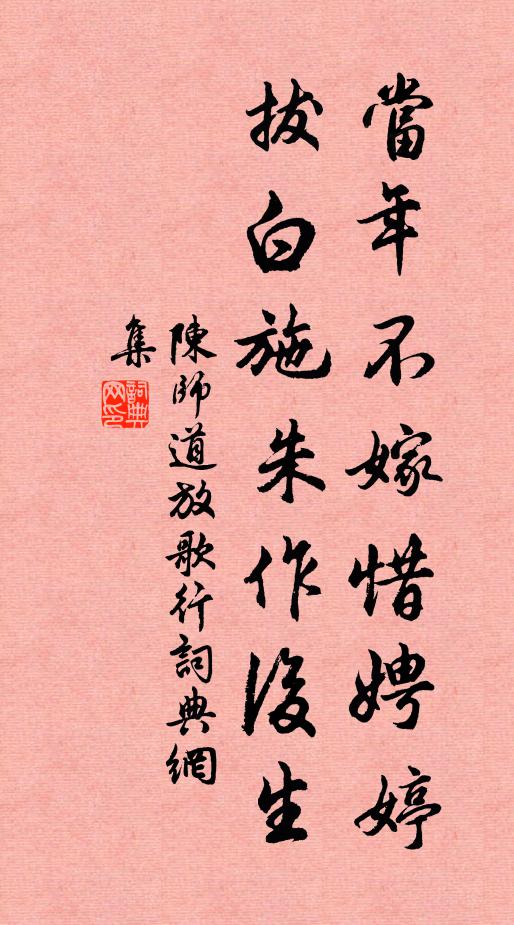 當年不嫁惜娉婷
拔白施朱作後生
陳師道放歌行詞典網
集
詞典网印